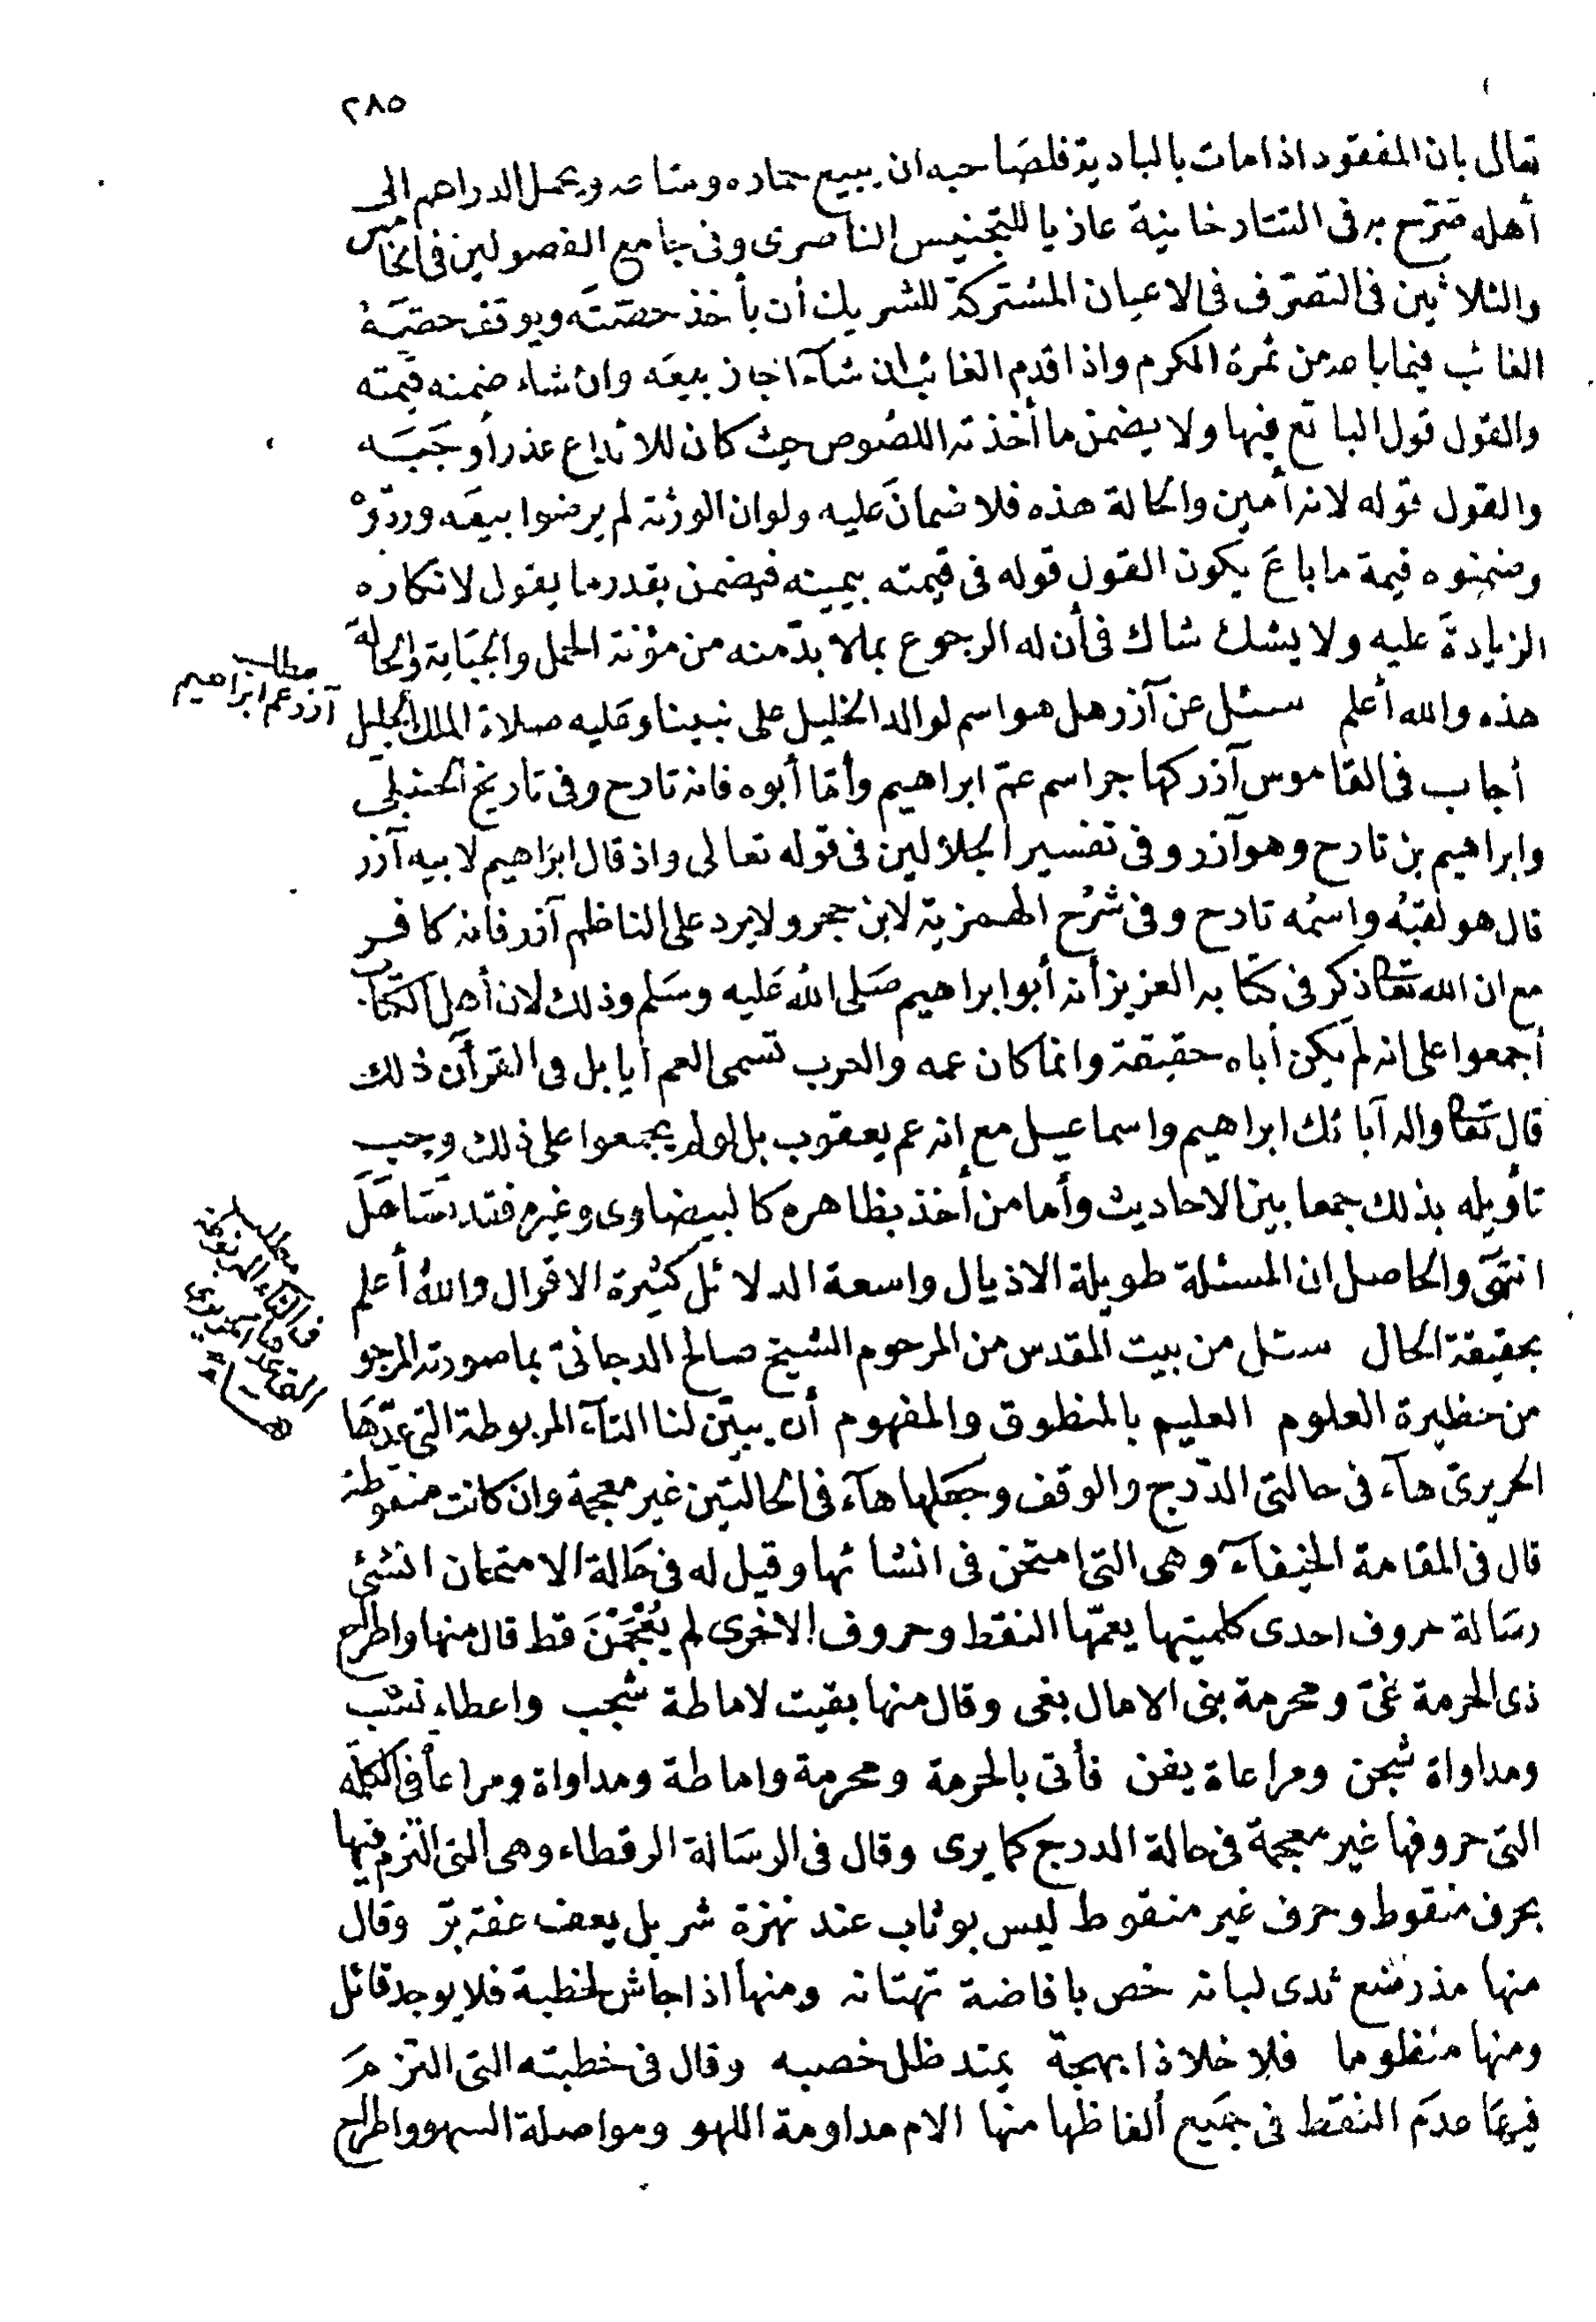 ٢٨٥
تعالى بان المفقود اذا مات بالبادية فلصاحبه ان يبيع حماره ومتاعه ويحمل الدراهم الى
أهله صرّح به في التتارخانية عازيا للتجنيس الناصرى وفى جامع الفصولين في الخامس
والثلاثين فى التصرّف فى الاعيان المشتركة للشريك أن يأخذ حصّته ويوقف حصّة
الغائب فيما باعه من ثمرة الكرم واذا قدم الغائب ان شآء اجاز بيعه وان شاء ضمنه قيمته
والقول قول البائع فيها ولا يضمن ما أخذته اللصوص حيث كان للا عذر أوجبه
والقول قوله لانه أمين والحالة هذه فلا ضمان عليه ولو ان الورثة لم يرضوا بيعه وردّوْ
وضمنوه قيمة ما باع يكون القول قوله فى قيمته بيمينه فيضمن بقدر ما يقول لانكاره
الزيادة عليه ولا يشك شاك فى أن له الرجوع بما لا بدّ منه من مؤنة الحمل والجباية والحالة
مطلب
آزر عم ابراهيم
هذه والله أعلم سئل عن آزر هل هو اسم لوالد الخليل على نبينا وعليه صلاة الملك الجليل
أجاب فى القاموس آزر كهاجر اسم عمّ ابراهيم وأمّا أبوه فانه تارح وفى تاريخ الحنبلى
وابراهيم بن تارح وهو آزر وفى تفسير الجلالين فى قوله تعالى واذ قال ابراهيم لابيه آزر
قال هو لقبُه واسمُه تارح وفى شرْح الهمزية لابن حجر ولا يرد على الناظم آزر فانه كافر
مع ان الله تعا ذكر فى كتابه العزيز أنه أبو ابراهيم صَلى اللهُ عَليه وسَلم وذلك لان أهل الكتاب
أجمعوا على انه لم يكن أباه حقيقة وانما كان عمه والعرب تسمى العم أبا بل فى القرآن ذلك
قال تعا واله آبائك ابراهيم واسماعيل مع انه عم يعقوب بل لو لم يجمعوا على ذلك وجب
تأويله بذلك جمعا بين الاحاديث وأما من أخذ بظاهره كالبيضاوى وغيره فقد تسَاهَلَ
انتهَى والحاصل ان المسئلة طويلة الاذيال واسعة الدلائل كثيرة الاقوال واللهُ أعلم
مطلب
فى التاء المربوطة
هاء
بحقيقة الحال سئل من بيت المقدس من المرحوم الشيخ صالح الدجانىّ بما صورته المرجو
من حظيرة العلوم العليم بالمنطوق والمفهوم أن يبيّن لنا التآء المربوطة التى عدّها
الحريرىّ هآء فى حالتى الدّرج والوقف وجَعَلها هآء فى الحالتين غير معجمة وان كانت منقوطة
قال فى المقامة الخيفآء وهى التى امتحن فى انشائها وقيل له فى حَالة الامتحان انشئ
رسَالة حروف احدى كلمتيها يعمّها النقط وحروف الاخرى لم يُعْجَمْنَ قط قال منها واطراح
ذى الحرمة غىّ ومحرمة بنى الامال بغى وقال منها بقيت لاماطة شجب واعطاء نشب
ومداواة شجن ومراعاة يفن فأتى بالحرمة ومحرمة واماطة ومداواة ومراعاة فى الكلمة
التى حروفها غير معجمة فى حالة الدرج كما يرى وقال فى الرسَالة الرقطاء وهى التى التزم فيها
بحرف منقوط وحرف غير منقوط ليس بوثاب عند نهزة شر بل يعف عفة برّ وقال
منها مذ رضع ثدى لبانه خص بافاضة تهتانه ومنها اذا جاش لخطبة فلا يوجد قائل
ومنها منظوما فلا خلا ذا بهجة يمتد ظل خصبه وقال فى خطبته التى التزم
فيهَا عدمَ النقط فى جَميع ألفاظها منها الام مداومة اللهو ومواصلة السهو واطراح